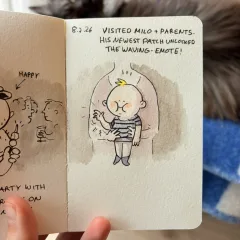 HAPPY
ARTY WITH
ON
8.2.26
VISITED MILO + PARENTS.
HIS NEWEST PATCH UNLOCKED
THE WAVING-EMOTE!